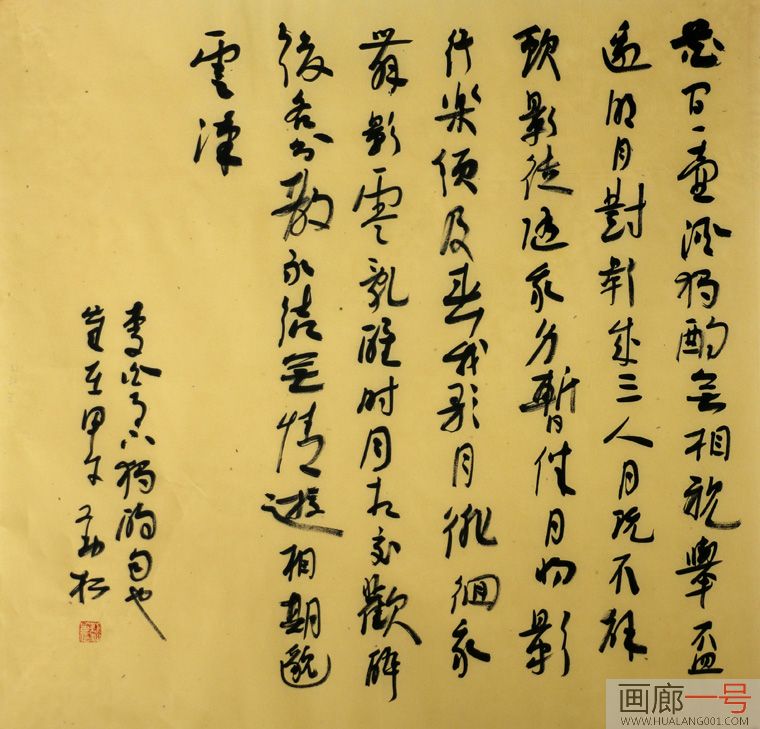 花間一壺酒獨酌無相親舉盃
邀明月對影成三人月既不解
飲影徒隨我身暫伴月將影
行樂須及春我歌月徘徊我
舞影零亂醒时同相交歡醉
後各分散永結無情遊相期邈
雲漢
李白月下獨酌句也
歲在甲午 勁松
画廊一号
WWW.HUALANG001.COM